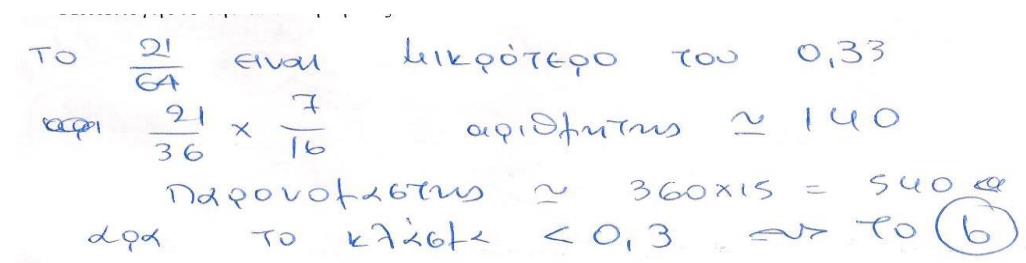 Το 21/64 ειναι μικρότερο του 0,33
21/36 × 7/16 αριθμητης ≃ 140
Παρονομαστης ≃ 360×15 = 540
αρα το κλάσμα < 0,3 => το (b)